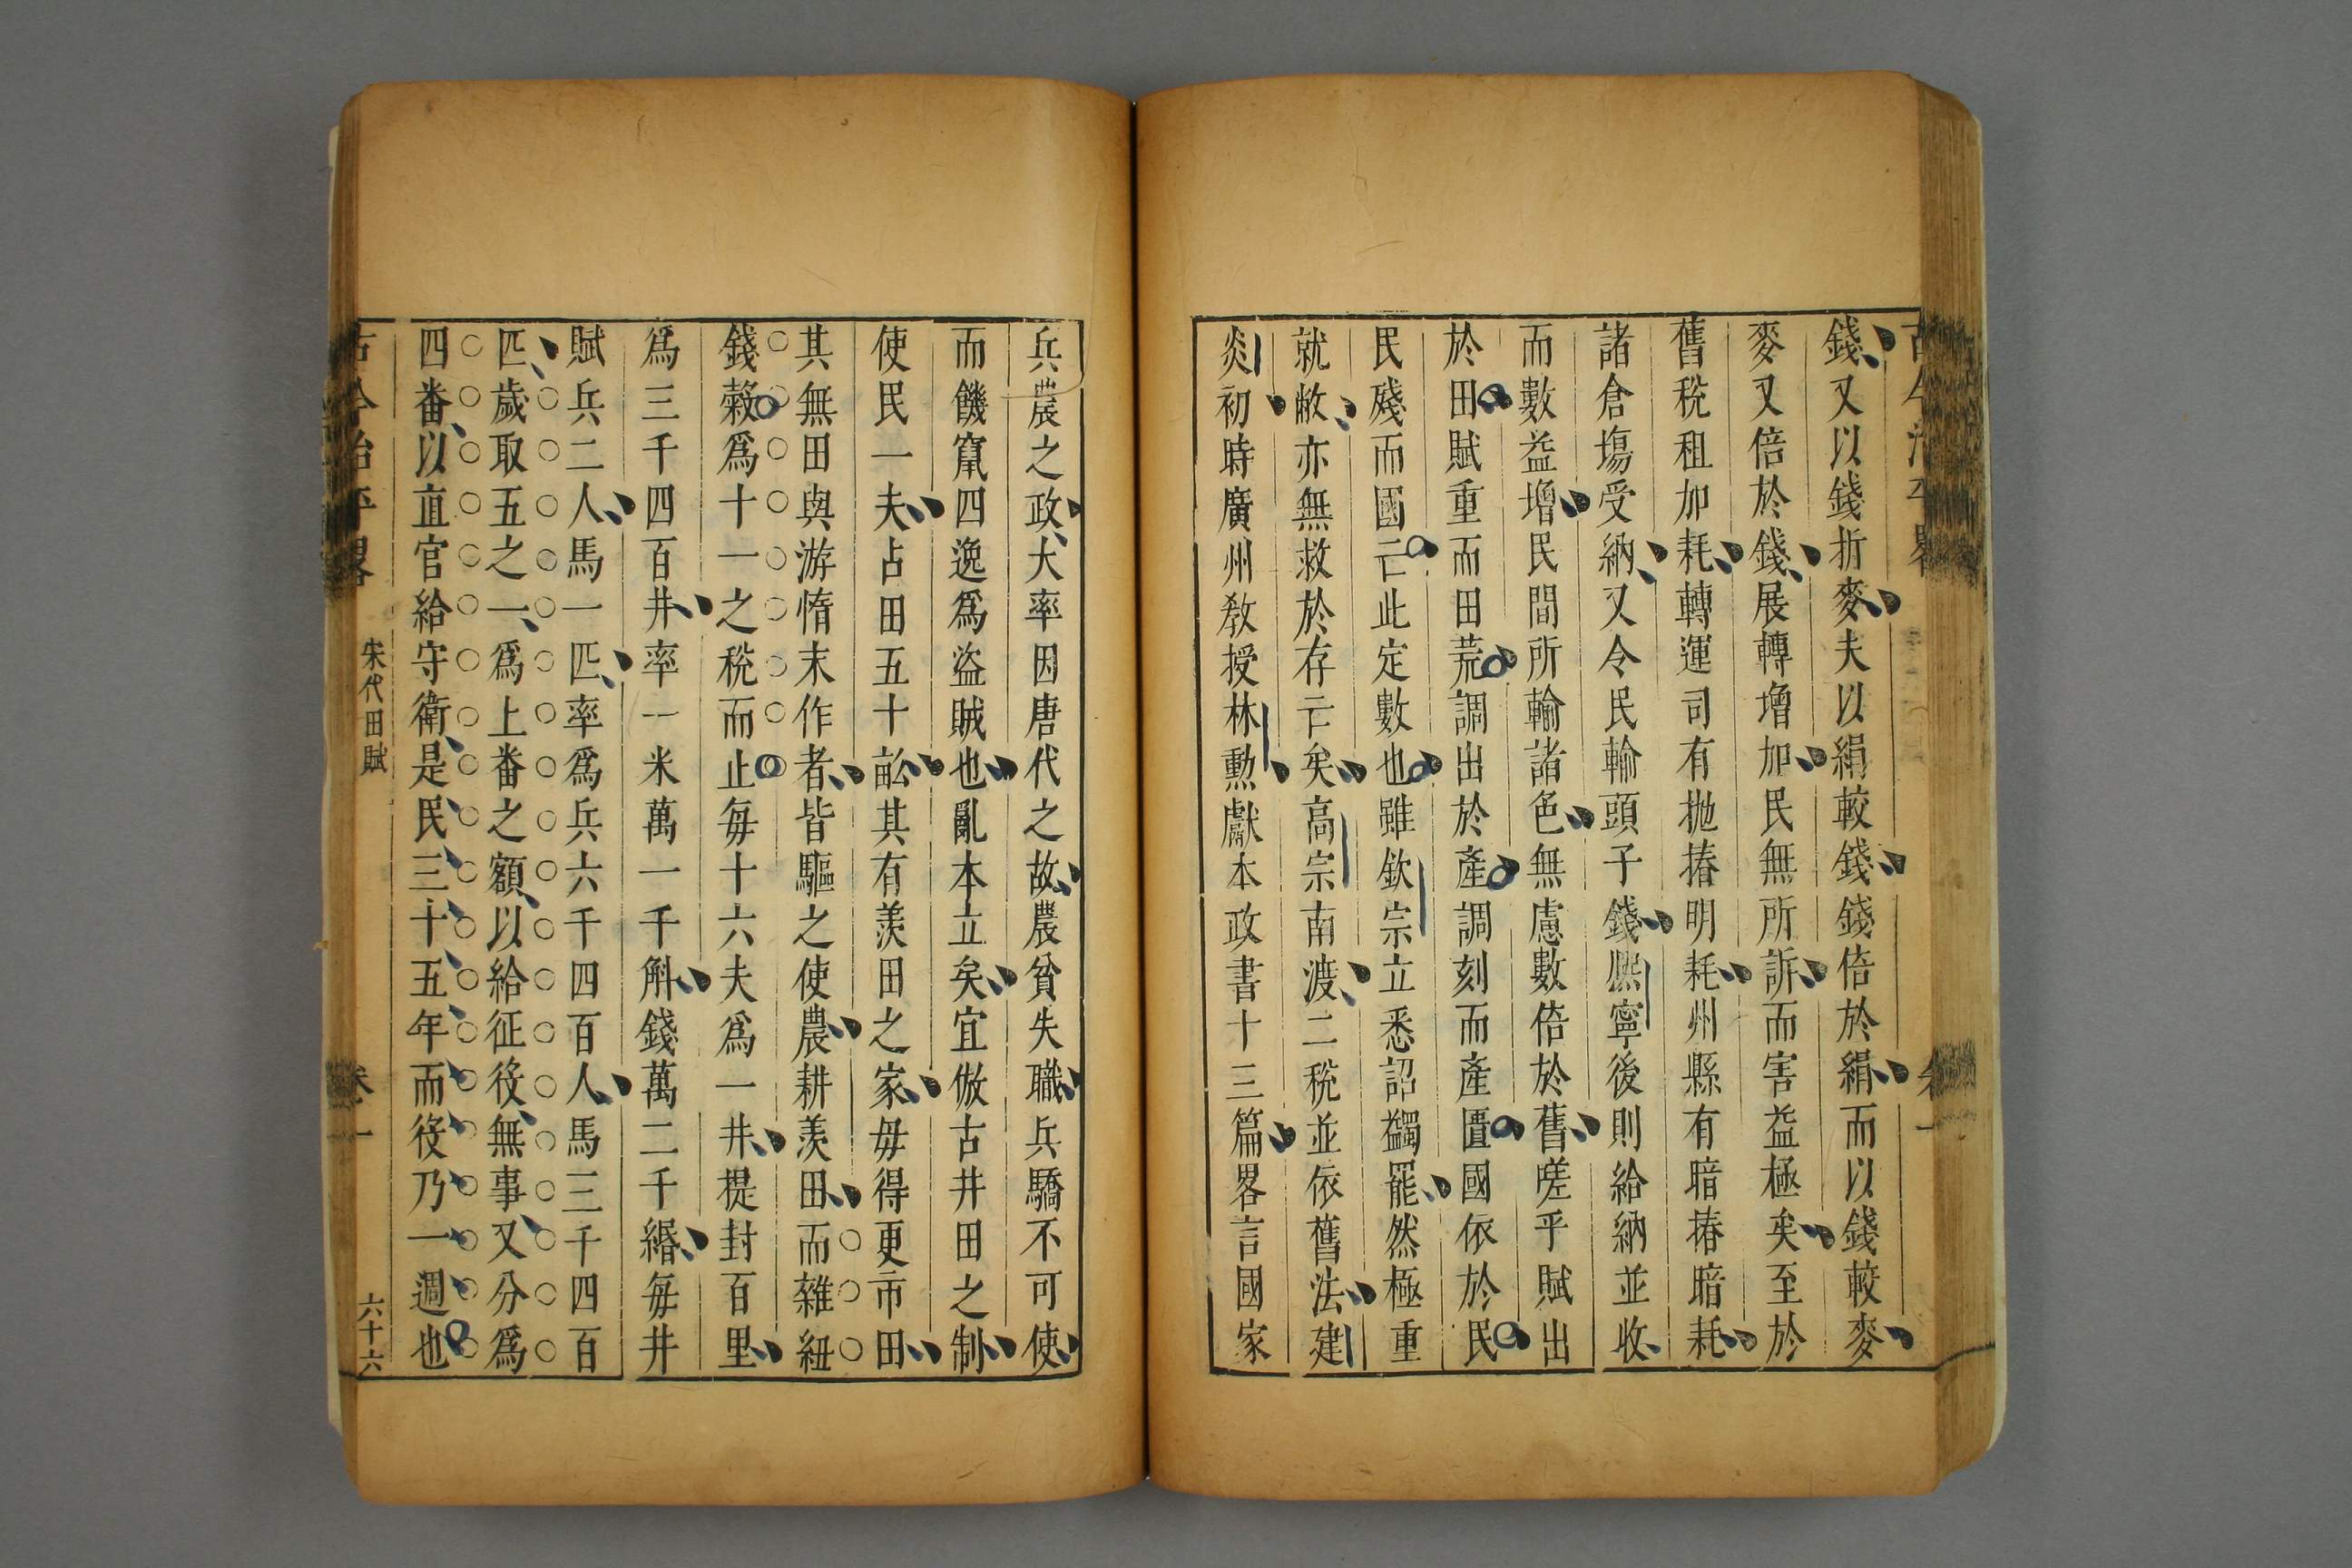 錢又以錢折麥夫以絹較錢錢倍於絹而以錢較麥
麥又倍於錢展轉增加民無所訴而害益極矣至於
舊稅租加耗轉運司有拋摏明耗州縣有暗摏暗耗
諸倉塲受納又令民輸頭子錢熈寧後則給納並收
而數益增民間所輸諸色無慮數倍於舊嗟乎賦出
於田賦重而田荒調出於產調刻而產匱國依於民
民殘而國亡此定數也雖欽宗立悉詔蠲罷然極重
就敝亦無救於存亡矣高宗南渡二稅並依舊法建
炎初時廣州教授林勲獻本政書十三篇畧言國家
兵農之政大率因唐代之故農貧失職兵驕不可使
而饑竄四逸爲盜賊也亂本立矣宜倣古井田之制
使民一夫占田五十畝其有羨田之家毋得更市田
其無田與游惰末作者皆驅之使農耕羨田而雜紐
錢穀爲十一之稅而止每十六夫爲一井提封百里
爲三千四百井率一米萬一千斛錢萬二千緡每井
賦兵二人馬一匹率爲兵六千四百人馬三千四百
匹歲取五之一爲上番之額以給征役無事又分爲
四番以直官給守衛是民三十五年而役乃一週也
古今治平畧 宋代田賦 卷一 六十六